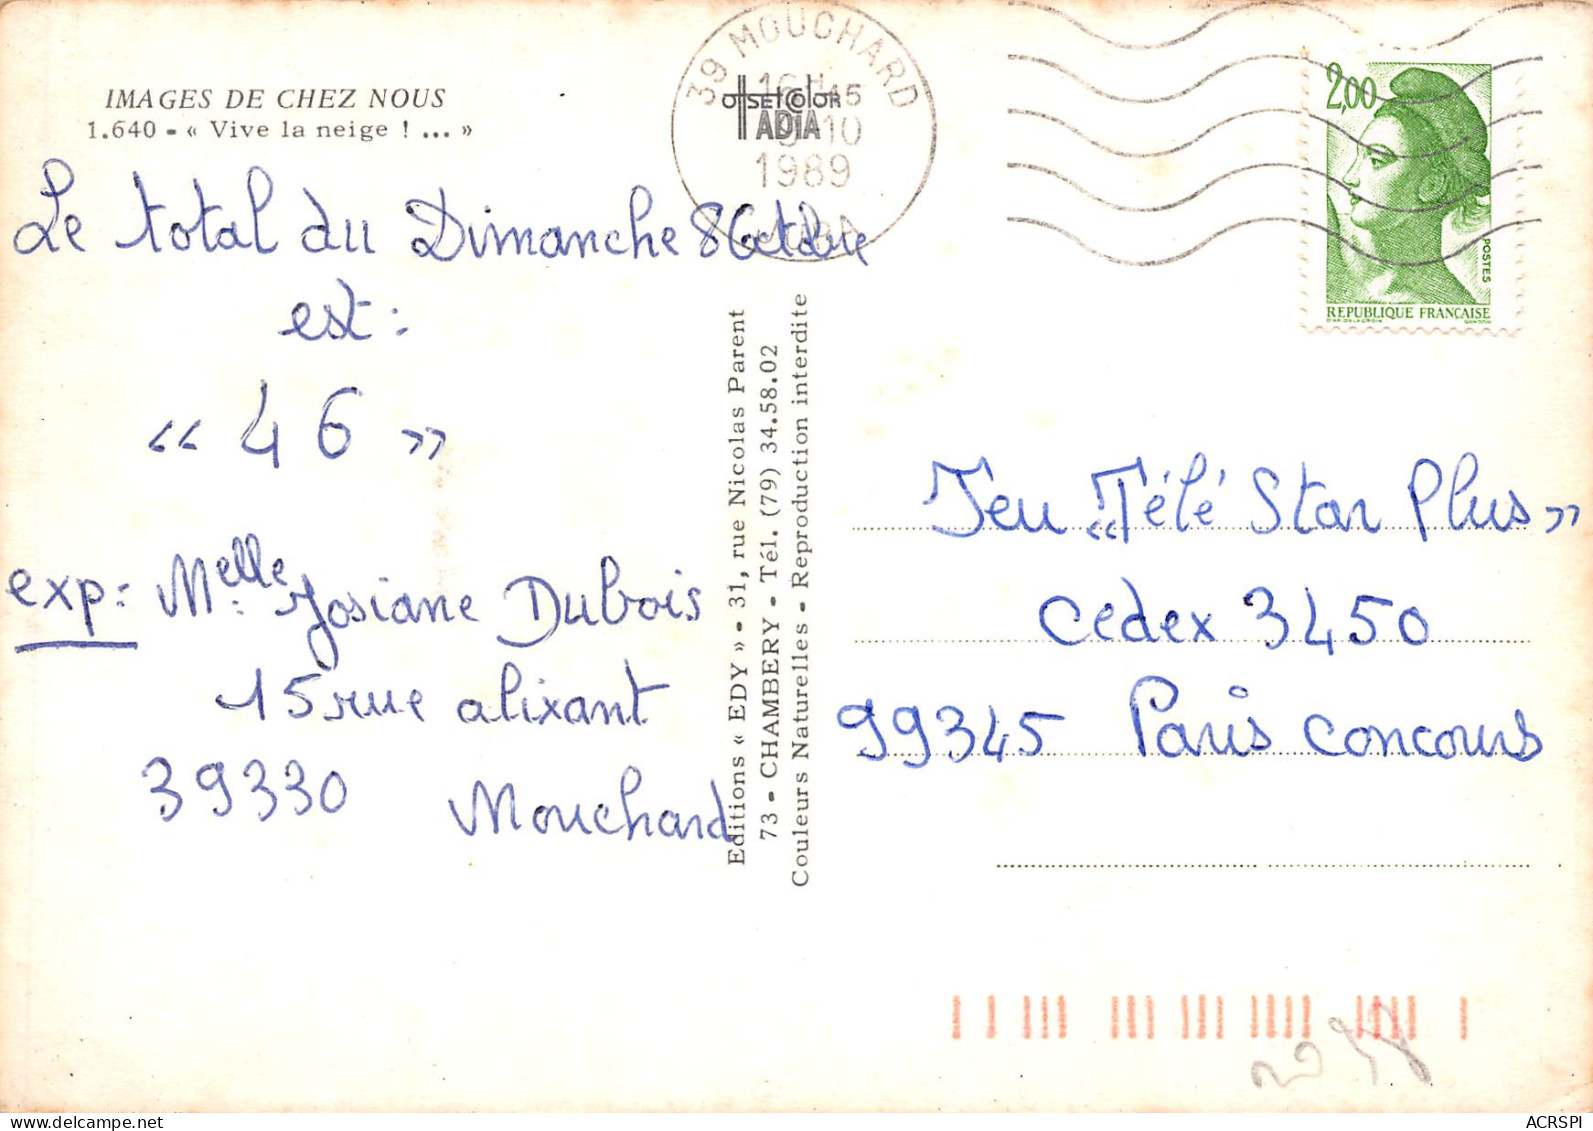 IMAGES DE CHEZ NOUS
1.640 - « Vive la neige ! ... »
39 MOUCHARD
16H45
10
1989
JURA
OFFSET COLOR
ADIA
2,00
POSTES
REPUBLIQUE FRANÇAISE
Le total du Dimanche 8 Octobre
est :
« 46 »
exp : Melle Josiane Dubois
15 rue alixant
39330 Mouchard
Editions « EDY » - 31, rue Nicolas Parent
73 - CHAMBERY - Tél. (79) 34.58.02
Couleurs Naturelles - Reproduction interdite
Jeu « Télé Star Plus »
Cedex 3450
99345 Paris concours
ACRSPI